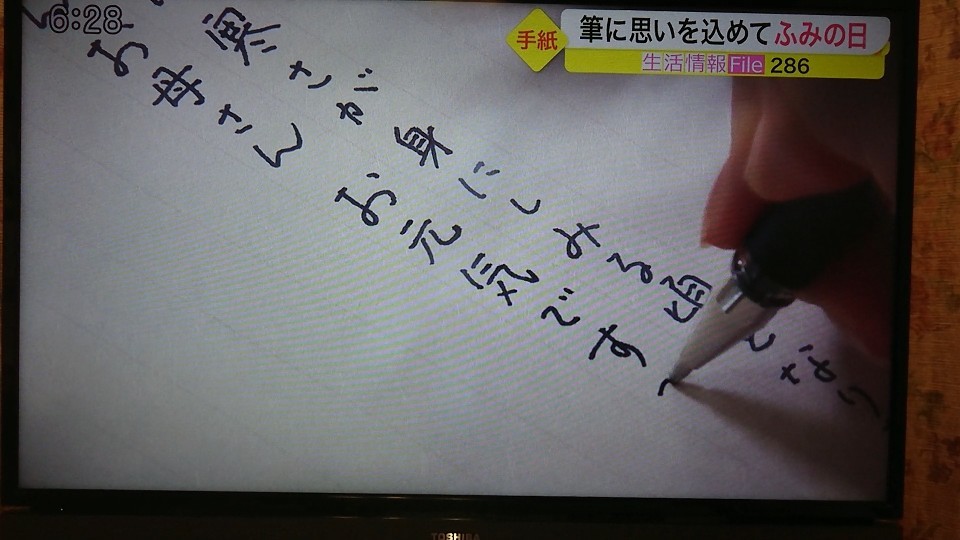 6:28
手紙
筆に思いを込めてふみの日
生活情報File 286
寒さが身にしみる頃となり
お母さん お元気です
TOSHIBA